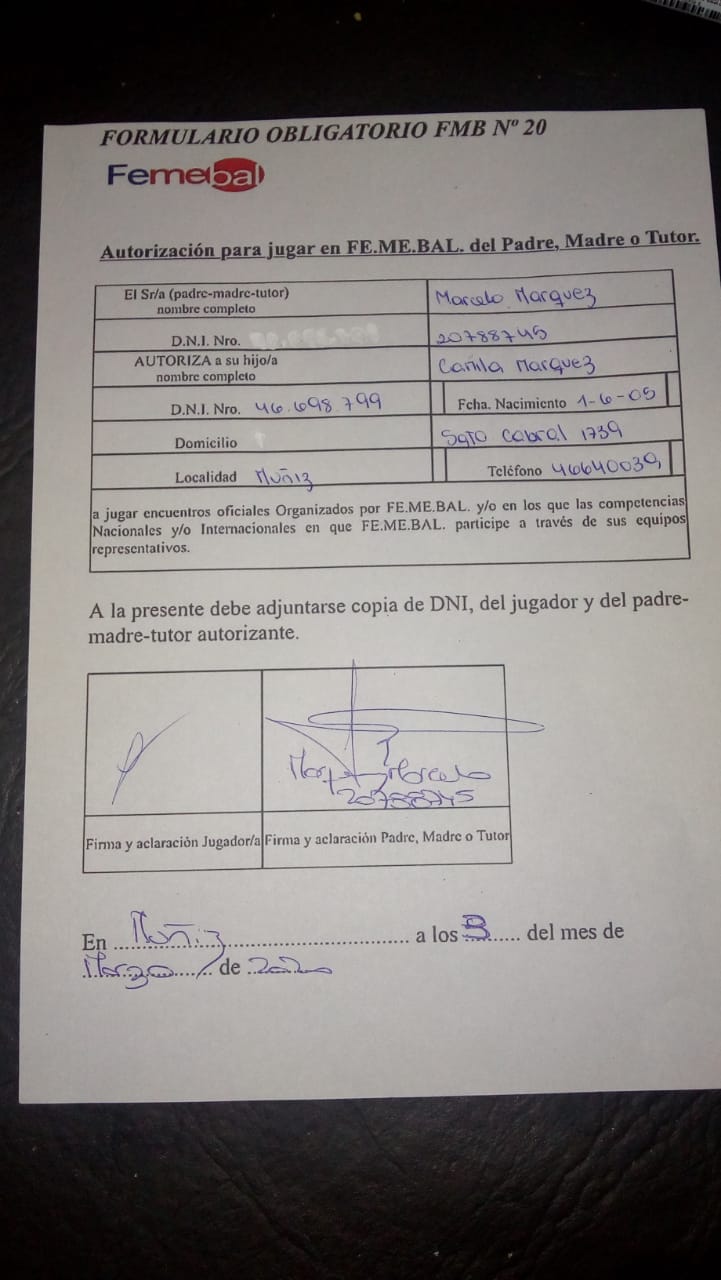 FORMULARIO OBLIGATORIO FMB Nº 20
Femebal
Autorización para jugar en FE.ME.BAL. del Padre, Madre o Tutor.
El Sr/a (padre-madre-tutor)
nombre completo
Marcelo Marquez
D.N.I. Nro.
20788745
AUTORIZA a su hijo/a
nombre completo
Camila Marquez
D.N.I. Nro. 46.698.799
Fcha. Nacimiento 1-6-05
Domicilio
Sgto Cabral 1739
Localidad Muñiz
Teléfono 46640039
a jugar encuentros oficiales Organizados por FE.ME.BAL. y/o en los que las competencias
Nacionales y/o Internacionales en que FE.ME.BAL. participe a través de sus equipos
representativos.
A la presente debe adjuntarse copia de DNI, del jugador y del padre-
madre-tutor autorizante.
Marquez Marcelo
20788745
Firma y aclaración Jugador/a
Firma y aclaración Padre, Madre o Tutor
En Muñiz a los del mes de
Marzo de 2020